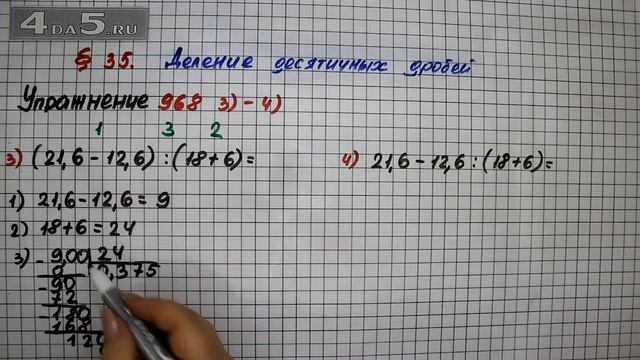 4DA5.RU
§ 35. Деление десятичных дробей
Упражнение 968 3)-4)
1 3 2
3) (21,6-12,6):(18+6)=
4) 21,6-12,6:(18+6)=
1) 21,6-12,6=9
2) 18+6=24
3) - 9,00 24
0 0,375
- 90
72
- 180
168
12